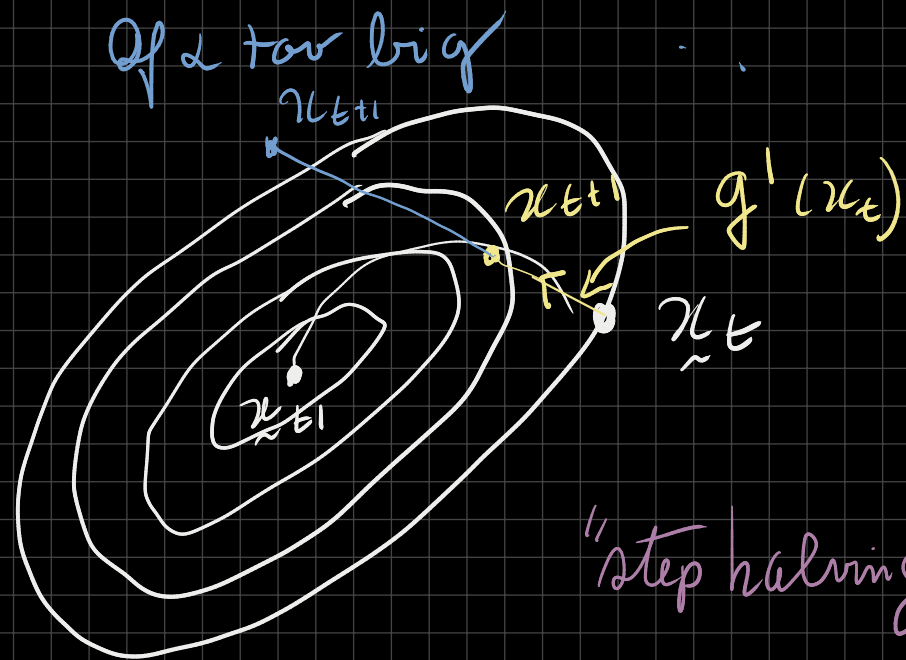 If α too big
x_{t+1}
x_{t+1}
g'(x_t)
x_t
x_{t+1}
"step halving